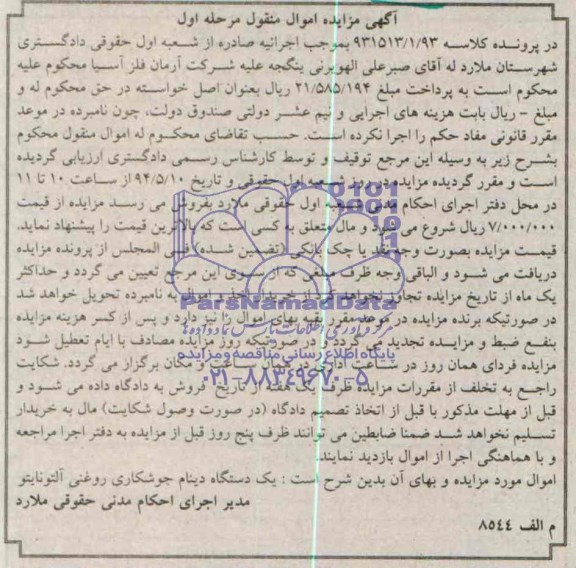 آگهی مزایده اموال منقول مرحله اول
در پرونده کلاسه ۹۳۱۵۱۳/۱/۹۳ بموجب اجرائیه صادره از شعبه اول حقوقی دادگستری
شهرستان ملارد له آقای صبرعلی الهویرنی ینگجه علیه شرکت آرمان فلز آسیا محکوم علیه
محکوم است به پرداخت مبلغ ۲۱/۵۸۵/۱۹۴ ریال بعنوان اصل خواسته در حق محکوم له و
مبلغ – ریال بابت هزینه های اجرایی و نیم عشر دولتی صندوق دولت، چون نامبرده در موعد
مقرر قانونی مفاد حکم را اجرا نکرده است. حسب تقاضای محکوم له اموال منقول محکوم
بشرح زیر به وسیله این مرجع توقیف و توسط کارشناس رسمی دادگستری ارزیابی گردیده
است و مقرر گردیده مزایده در روز شعبه اول حقوقی و تاریخ ۹۴/۵/۱۰ از ساعت ۱۰ تا ۱۱
در محل دفتر اجرای احکام مدنی شعبه اول حقوقی ملارد بفروش می رسد مزایده از قیمت
۷/۰۰۰/۰۰۰ ریال شروع می شود و مال متعلق به کسی است که بالاترین قیمت را پیشنهاد نماید.
قیمت مزایده بصورت وجه نقد یا چک بانکی (تضمین شده) فی المجلس از پرونده مزایده
دریافت می شود و الباقی وجه ظرف مبلغی که از سوی این مرجع تعیین می گردد و حداکثر
یک ماه از تاریخ مزایده تجاوز نخواهد کرد از خریدار اخذ و اموال به نامبرده تحویل خواهد شد
در صورتیکه برنده مزایده در موعد مقرر بقیه بهای اموال را نپردازد و پس از کسر هزینه مزایده
بنفع ضبط و مزایده تجدید می گردد و در صورتیکه روز مزایده مصادف با ایام تعطیل شود
مزایده فردای همان روز در ساعت اداری در همان ساعت و مکان برگزار می گردد. شکایت
راجع به تخلف از مقررات مزایده ظرف یک هفته از تاریخ فروش به دادگاه داده می شود و
قبل از مهلت مذکور با قبل از اتخاذ تصمیم دادگاه (در صورت وصول شکایت) مال به خریدار
تسلیم نخواهد شد ضمنا ضابطین می توانند ظرف پنج روز قبل از مزایده به دفتر اجرا مراجعه
و با هماهنگی اجرا از اموال بازدید نمایند.
اموال مورد مزایده و بهای آن بدین شرح است : یک دستگاه دینام جوشکاری روغنی آلتونایتو
مدیر اجرای احکام مدنی حقوقی ملارد
م الف ۸۵۴۴
ParsNamadData
پایگاه اطلاع رسانی مناقصه و مزایده
۰۲۱-۸۸۳۴۹۶۷۰-۵